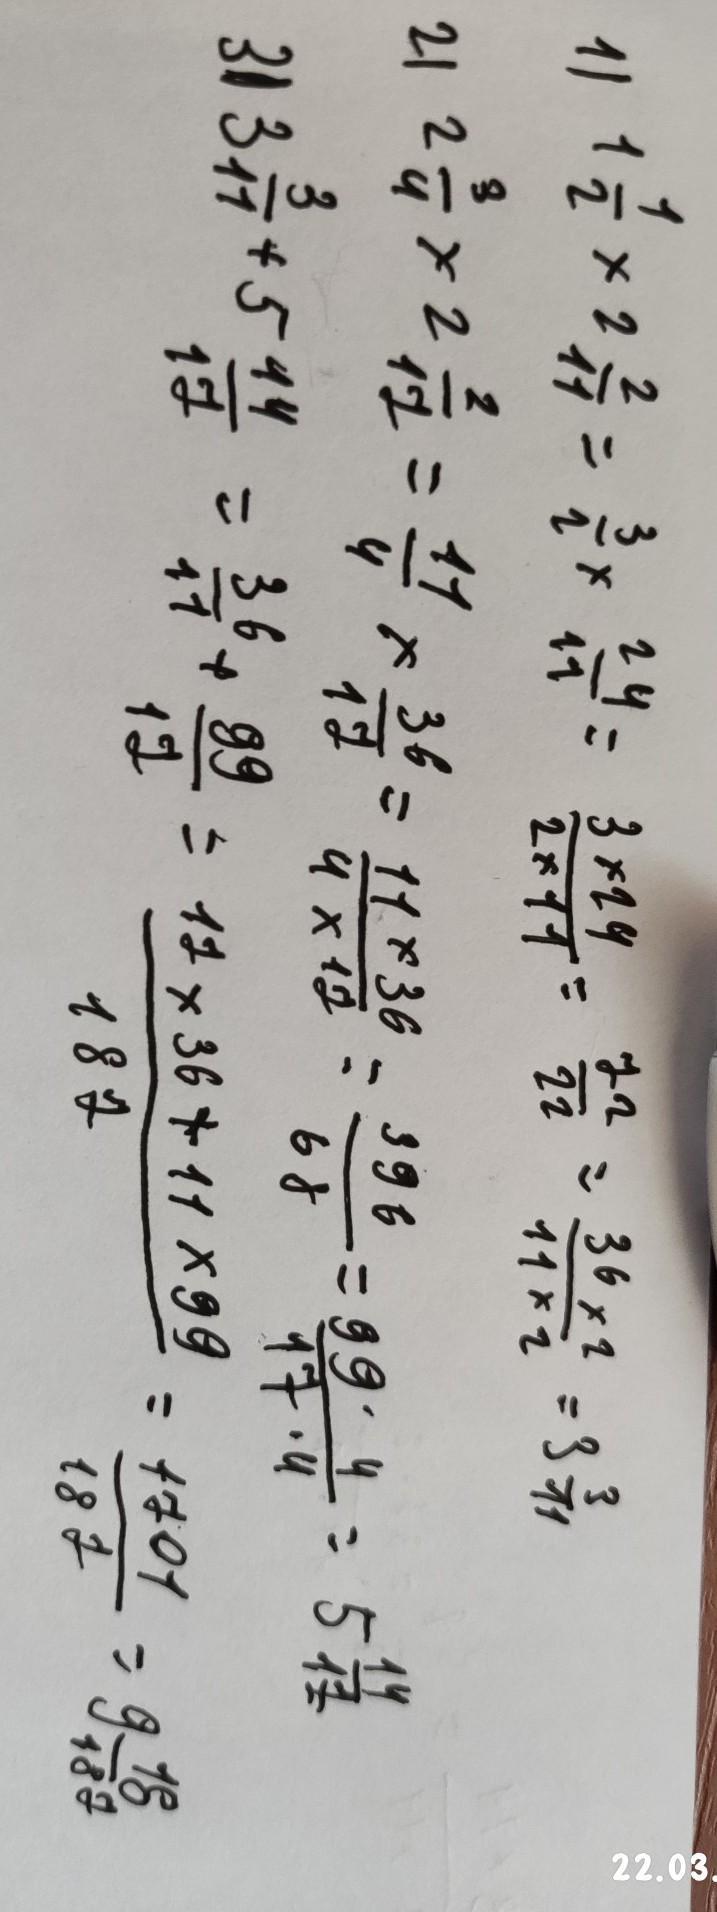 1) 1 1/2 × 2 2/11 = 3/2 × 24/11 = 3×24/2×11 = 72/22 = 36×2/11×2 = 3 3/11
2) 2 3/4 × 2 2/17 = 11/4 × 36/17 = 11×36/4×17 = 396/68 = 99·4/17·4 = 5 14/17
3) 3 3/11 + 5 14/17 = 36/11 + 99/17 = 17×36+11×99/187 = 1701/187 = 9 18/187
22.03.